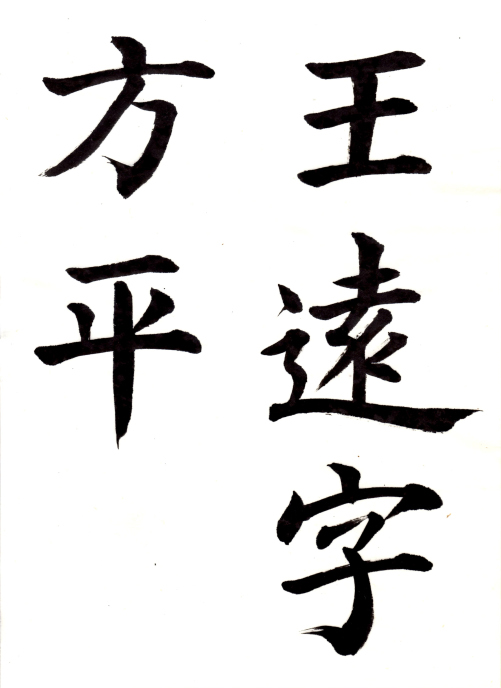 王遠字
方平